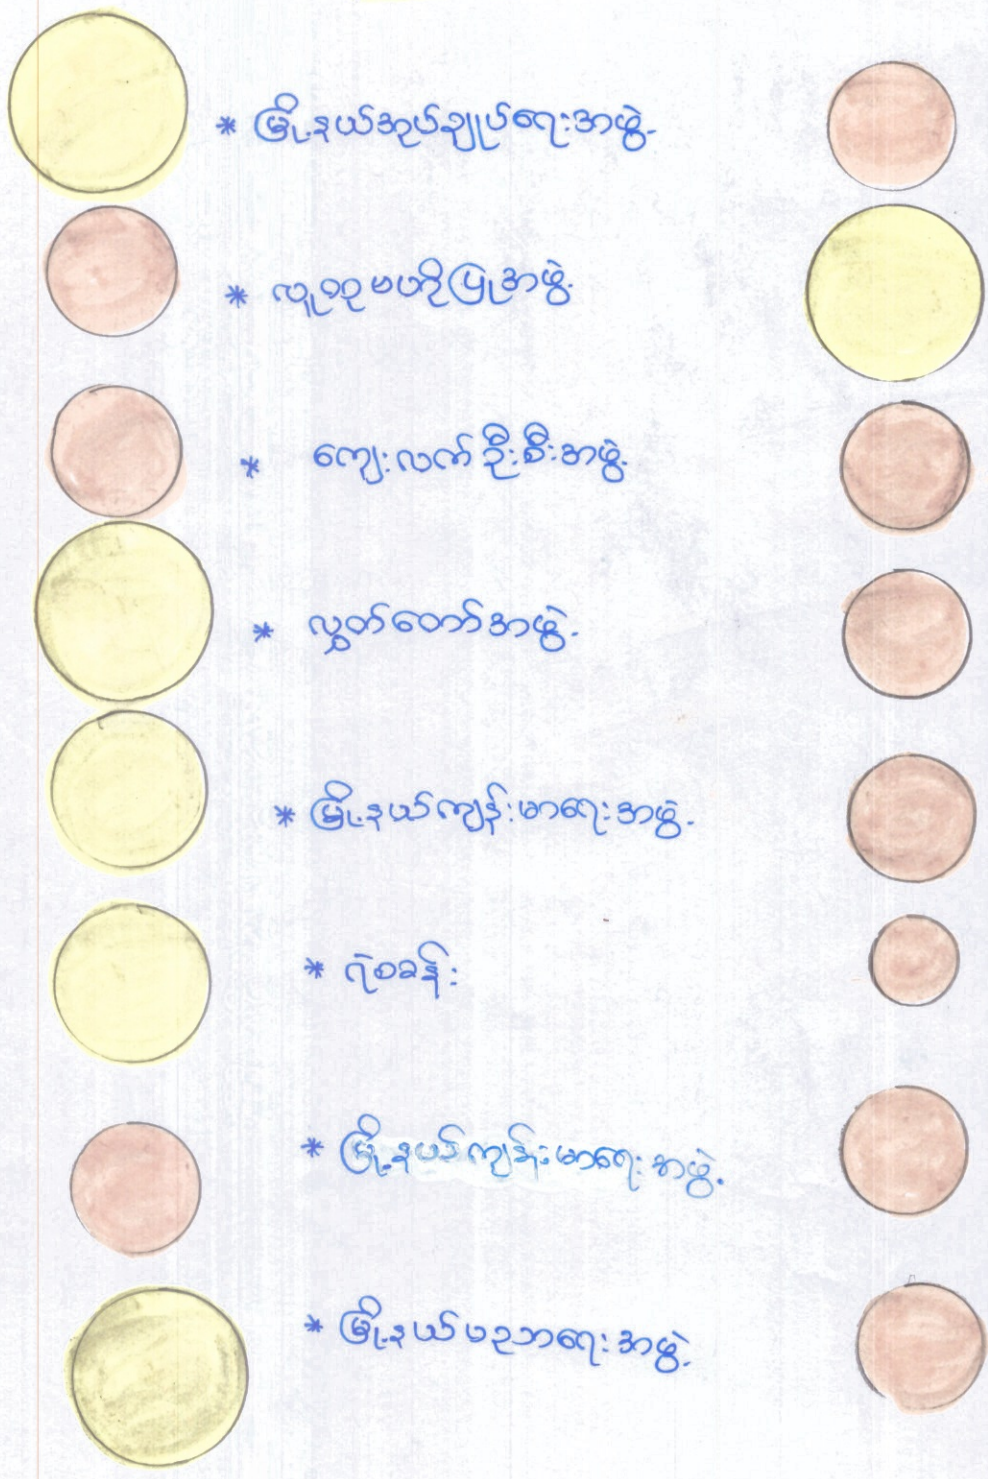 * မြို့နယ်အုပ်ချုပ်ရေးအဖွဲ့
* လူထုဗဟိုပြုအဖွဲ့
* ကျေးလက်ဦးစီးအဖွဲ့
* လွှတ်တော်အဖွဲ့
* မြို့နယ်ကျန်းမာရေးအဖွဲ့
* ရဲစခန်း
* မြို့နယ်ကျန်းမာရေးအဖွဲ့
* မြို့နယ်ပညာရေးအဖွဲ့